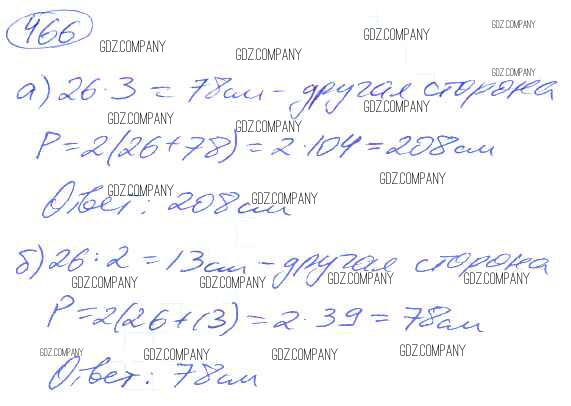 466
GDZ.COMPANY GDZ.COMPANY GDZ.COMPANY GDZ.COMPANY
а) 26·3 = 78см - другая сторона
GDZ.COMPANY GDZ.COMPANY
GDZ.COMPANY GDZ.COMPANY
P = 2(26+78) = 2·104 = 208см
GDZ.COMPANY GDZ.COMPANY GDZ.COMPANY
Ответ: 208см
б) 26:2 = 13см - другая сторона
GDZ.COMPANY GDZ.COMPANY GDZ.COMPANY GDZ.COMPANY
P = 2(26+13) = 2·39 = 78см
GDZ.COMPANY GDZ.COMPANY GDZ.COMPANY GDZ.COMPANY
Ответ: 78см